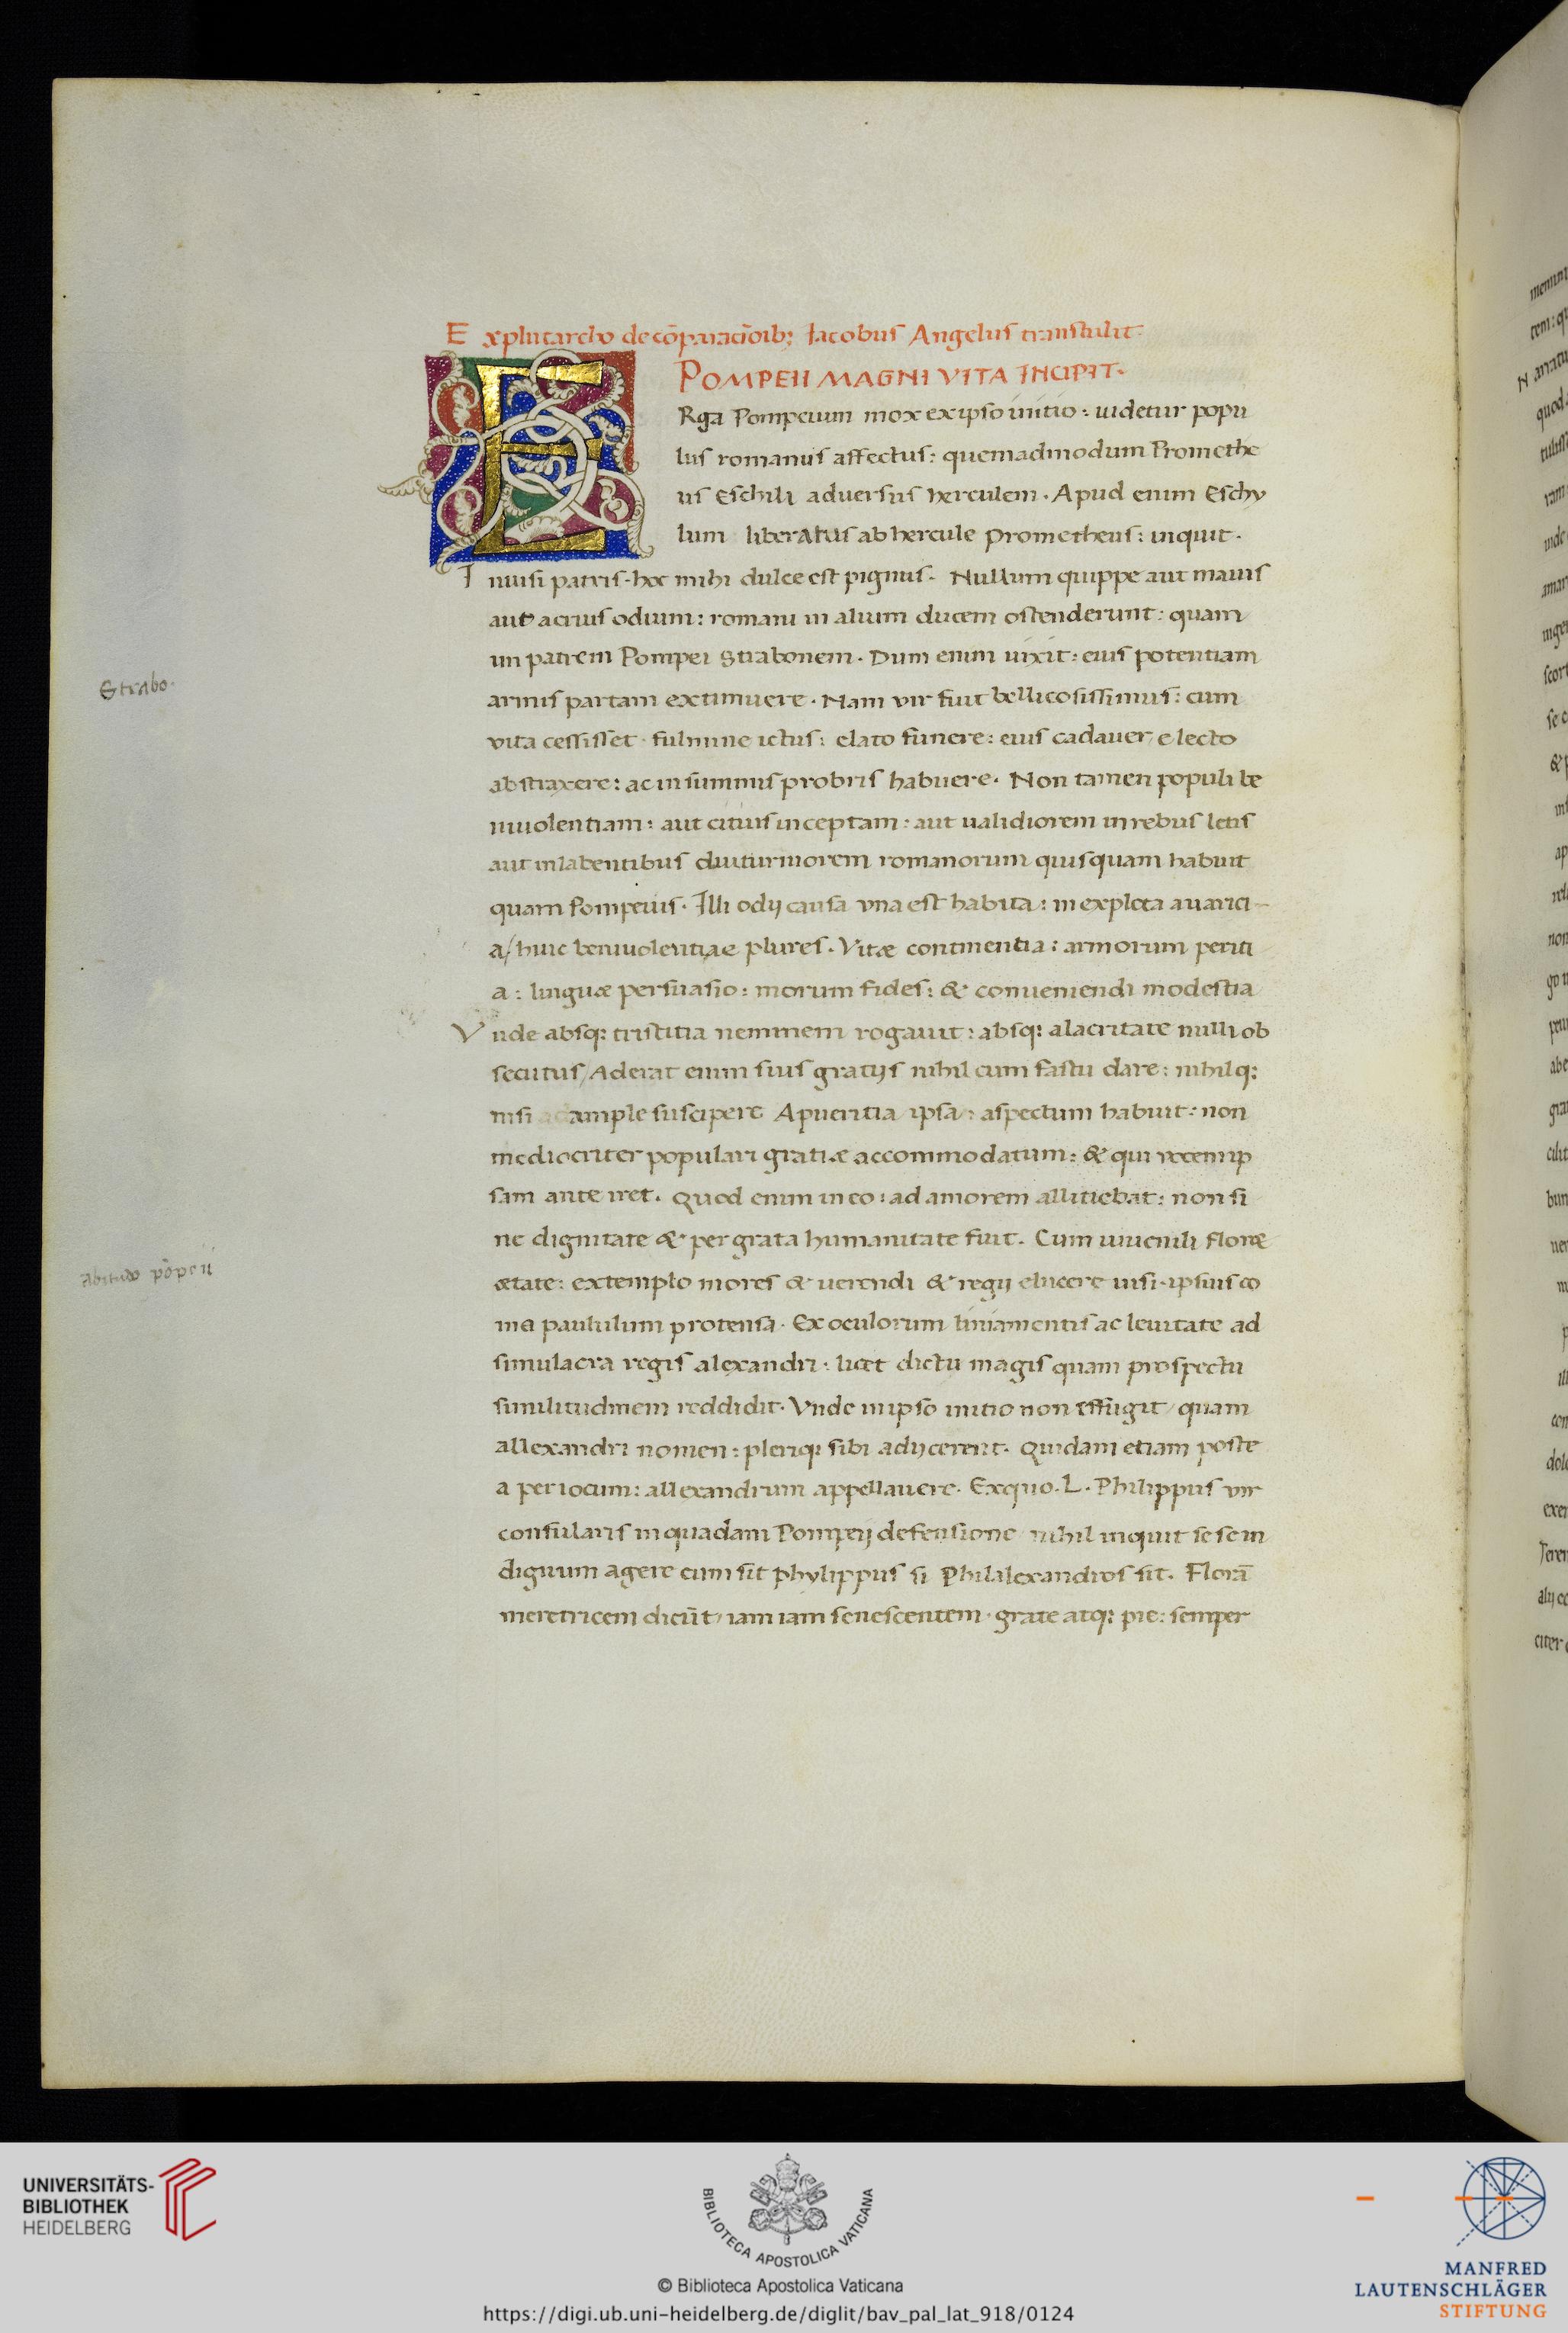 Explutarcho de cōparaciōib; Iacobus Angelus transtulit
POMPEII MAGNI VITA INCIPIT.
ERga Pompeium mox ex ipso initio: uidetur popu
lus romanus affectus: quemadmodum Promethe
us Eschili aduersus herculem. Apud enim Eschy
lum liberatus ab hercule Prometheus: inquit.
Inuisi patris. hoc mihi dulce est pignus. Nullum quippe aut maius
aut acrius odium: romani in alium ducem ostenderunt: quam
in patrem Pompei Strabonem. Dum enim uixit: eius potentiam
armis partam extimuere. Nam vir fuit bellicosissimus: cum
vita cessisset fulmine ictus: elato funere: eius cadauer e lecto
abstraxere: ac in summis probris habuere. Non tamen populi be
niuolentiam: aut citius inceptam: aut ualidiorem in rebus letis
aut in labentibus diuturniorem romanorum quisquam habuit
quam Pompeius. Illi odij causa vna est habita: in expleta auarici-
a/ huic beniuolentiae plures. Vitæ continentia: armorum periti
a: linguæ persuasio: morum fides: & conueniendi modestia
Vnde absq; tristitia neminem rogauit: absq; alacritate nulli ob
secutus/ Aderat enim suis gratijs nihil cum fastu dare: nihilq;
nisi ample suscipere Apueritia ipsa: aspectum habuit: non
mediocriter populari gratiæ accommodatum: & qui vocem ip
sam ante iret. Quod enim in eo: ad amorem allitiebat: non si
ne dignitate & per grata humanitate fuit. Cum iuuenili flore
ætate: extemplo mores & uerendi & regij elucere uisi. ipsius co
ma paululum protensa. Ex oculorum liniamentis ac leuitate ad
simulacra regis alexandri: licet dictu magis quam prospectu
similitudinem reddidit. Vnde in ipso initio non effugit/ quam
allexandri nomen: pleriq; sibi adijcerent. Quidam etiam poste
a per iocum: allexandrum appellauere. Exquo. L. Philippus vir
consularis in quadam Pompeij defensione nihil inquit se se in
dignum agere cum sit phylippus si Philalexandros sit. Florā
meretricem dicūt/ iam iam senescentem. grate atq; pie: semper
Strabo.
Abitudo pōpeii
UNIVERSITÄTS-
BIBLIOTHEK
HEIDELBERG
BIBLIOTECA APOSTOLICA VATICANA
© Biblioteca Apostolica Vaticana
https://digi.ub.uni-heidelberg.de/diglit/bav_pal_lat_918/0124
MANFRED
LAUTENSCHLÄGER
STIFTUNG